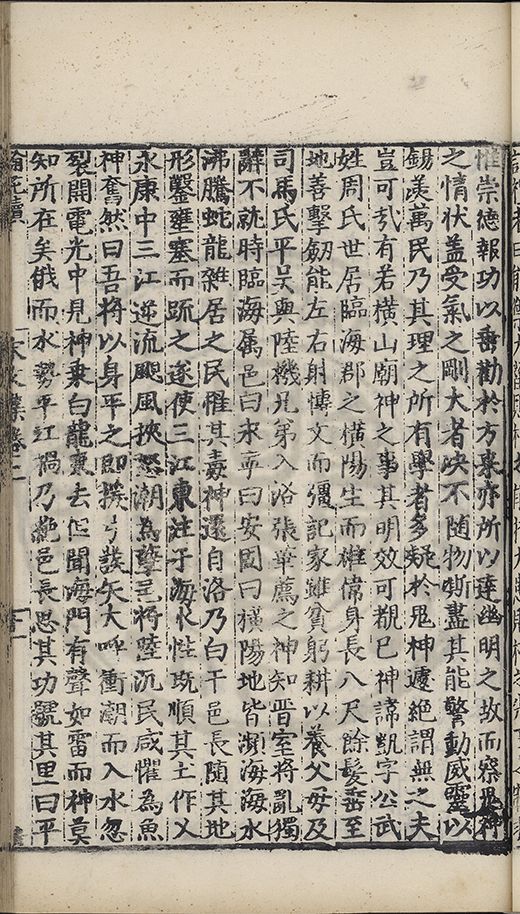 惟崇德報功以垂勸於方來亦所以達幽明之故而察鬼神
之情状盖受氣之剛大者决不随物澌盡其能警動威靈以
錫羙萬民乃其理之所有學者多疑於鬼神遽絶謂無之夫
豈可㢤有若横山廟神之事其明效可覩已神諱凱字公武
姓周氏世居臨海郡之横陽生而雄偉身長八尺餘髮垂至
地善擊劒能左右射博文而彊記家雖貧躬耕以養父母及
司馬氏平吴與陸機兄弟入洛張華薦之神知晋室將亂獨
辭不就時臨海属邑曰永寧曰安固曰横陽地皆瀕海海水
沸騰蛇龍雜居之民罹其毒神還自洛乃白于邑長随其地
形鑿壅塞而疏之遂使三江東注于海水性既順其土作乂
永康中三江逆流颶風挾怒潮為孽邑將陸沉民咸懼為魚
神奮然曰吾將以身平之即援弓發矢大呼衝潮而入水忽
裂開電光中見神乗白龍東去但聞海門有聲如雷而神莫
知所在矣俄而水勢平江禍乃絶邑長思其功號其里曰平